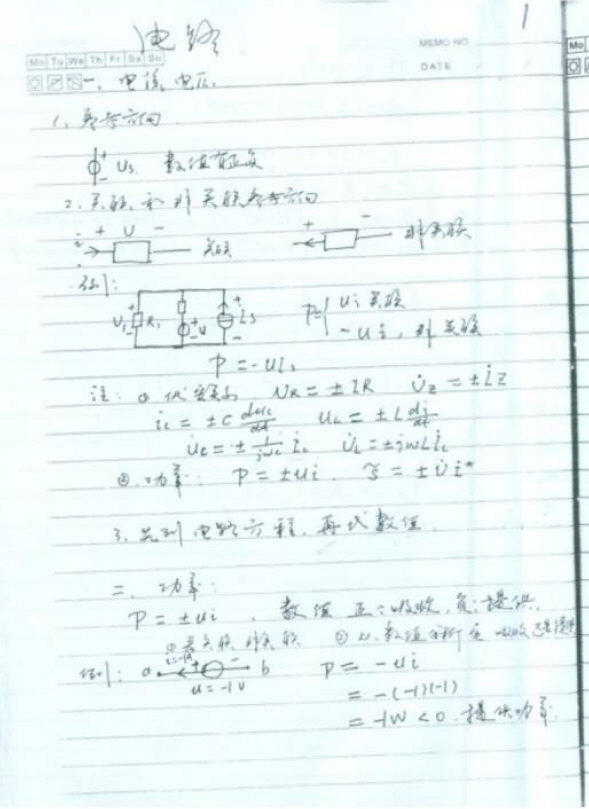 1
电路
MEMO NO
DATE
Mo Tu We Th Fr Sa Su
一、电流、电压、
1、参考方向
+ Us 数值有正负
2、关联和非关联参考方向
i + U - 关联
+ - 非关联
例:
U₁ R₁ + - U is P= { ui 关联
-ui, 非关联
P = -uis
注: ① 伏安关系 UR = ±IR U̇z = ±İZ
ic = ±C duc/dt uL = ±L di/dt
U̇c = ± 1/jωc İc U̇L = ±jωL İL
② 功率: P = ±ui. S̃ = ±U̇İ*
3、先列电路方程, 再代数值.
二、功率:
P = ±ui, 数值 正:吸收, 负:提供.
① 关联 非关联 ② 从数值分析是吸收还是提供
例: a i=-1A + - b P = -ui
u = -1V = -(-1)(-1)
= -1W < 0. 提供功率.
Mo